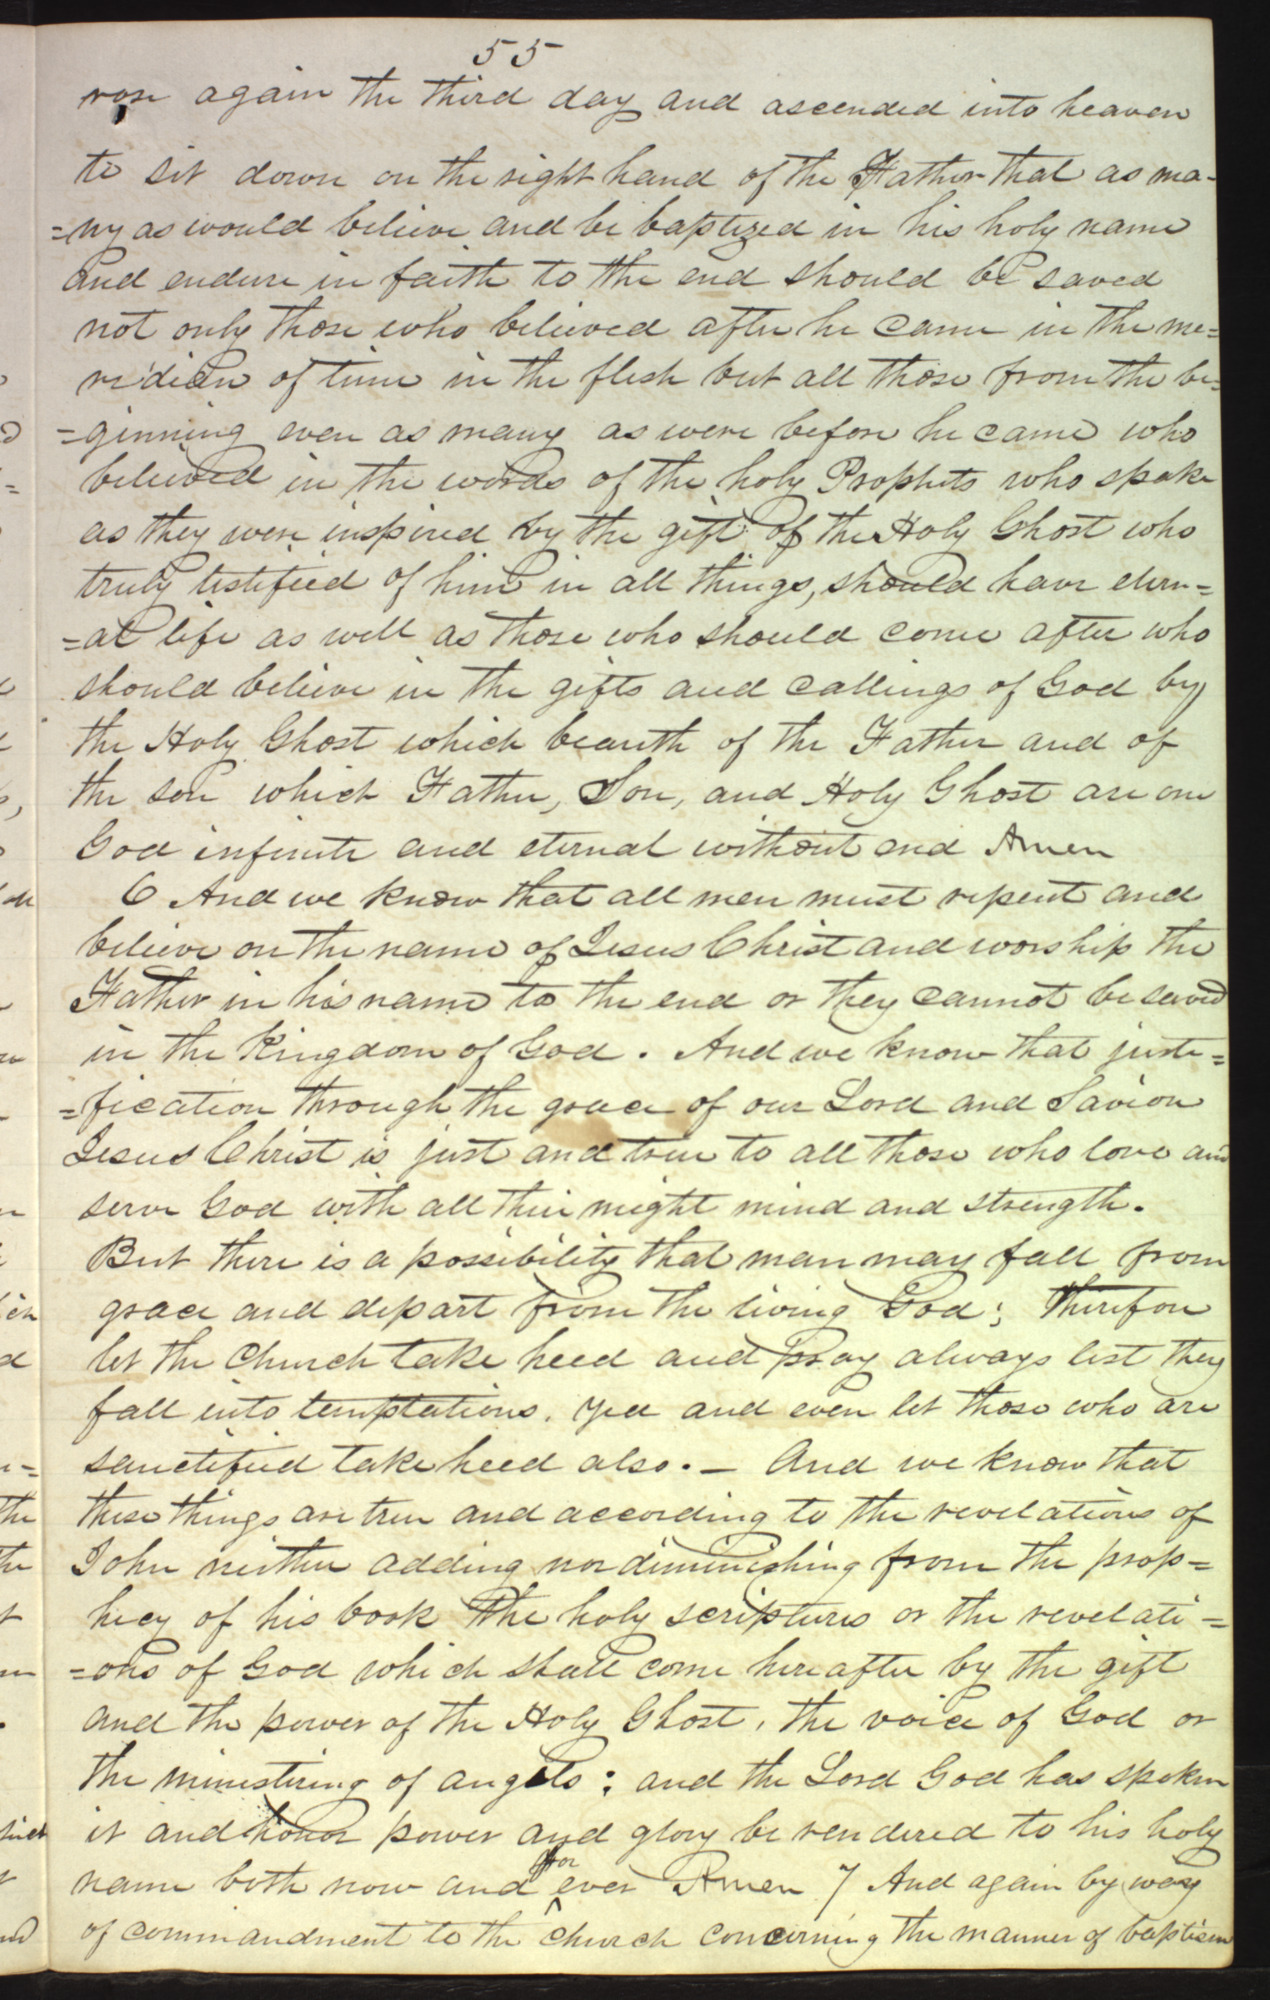 55
rose again the third day and ascended into heaven
to sit down on the right hand of the Father that as ma-
=ny as would believe and be baptized in his holy name
and endure in faith to the end should be saved
not only those who believed after he came in the me=
ridian of time in the flesh but all those from the be=
=ginning even as many as were before he came who
believed in the words of the holy Prophets who spake
as they were inspired by the gift of the Holy Ghost who
truly testified of him in all things, should have etern=
=al life as well as those who should come after who
should believe in the gifts and callings of God by
the Holy Ghost which beareth of the Father and of
the son which Father, Son, and Holy Ghost are one
God infinite and eternal without end Amen
6 And we know that all men must repent and
believe on the name of Jesus Christ and worship the
Father in his name to the end or they cannot be saved
in the Kingdom of God. And we know that justi=
=fication through the grace of our Lord and Savior
Jesus Christ is just and true to all those who love and
serve God with all their might mind and strength.
But there is a possibility that man may fall from
grace and depart from the living God; therefore
let the Church take heed and pray always lest they
fall into temptations. yea and even let those who are
sanctified take heed also. — And we know that
these things are true and according to the revelations of
John neither adding nor diminishing from the prop=
hecy of his book the holy scriptures or the revelati=
=ons of God which shall come hereafter by the gift
and the power of the Holy Ghost, the voice of God or
the ministering of angels: and the Lord God has spoken
it and honor power and glory be rendered to his holy
name both now and for ever Amen 7 And again by way
of commandment to the church concerning the manner of baptism